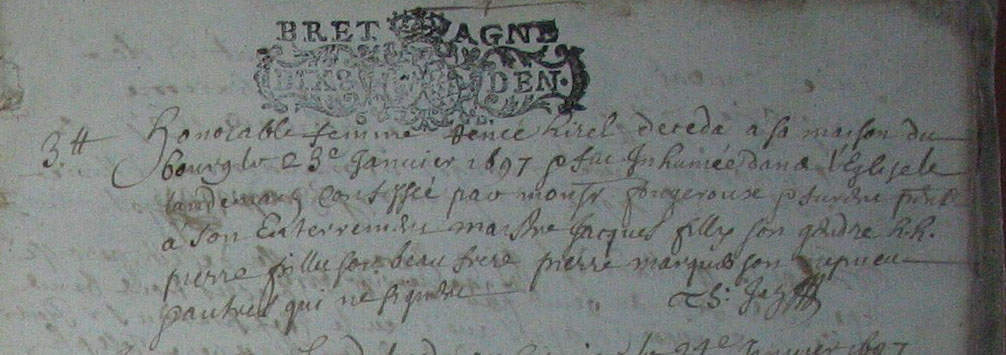 BRET AGNE
DIX8 DEN.
3.tt Honorable femme Renée hirel deceda a sa maison du
bourg le 23e Janvier 1697 & fut Inhumée dans l'Eglise le
landemain Confessée par monsr fougeroux & furent pnts
a son Enterrement maistre Jacques fillux son gendre h.h.
pierre fillu son beau frere pierre marquis son nepueu
& autres qui ne signent
Janvier 1697